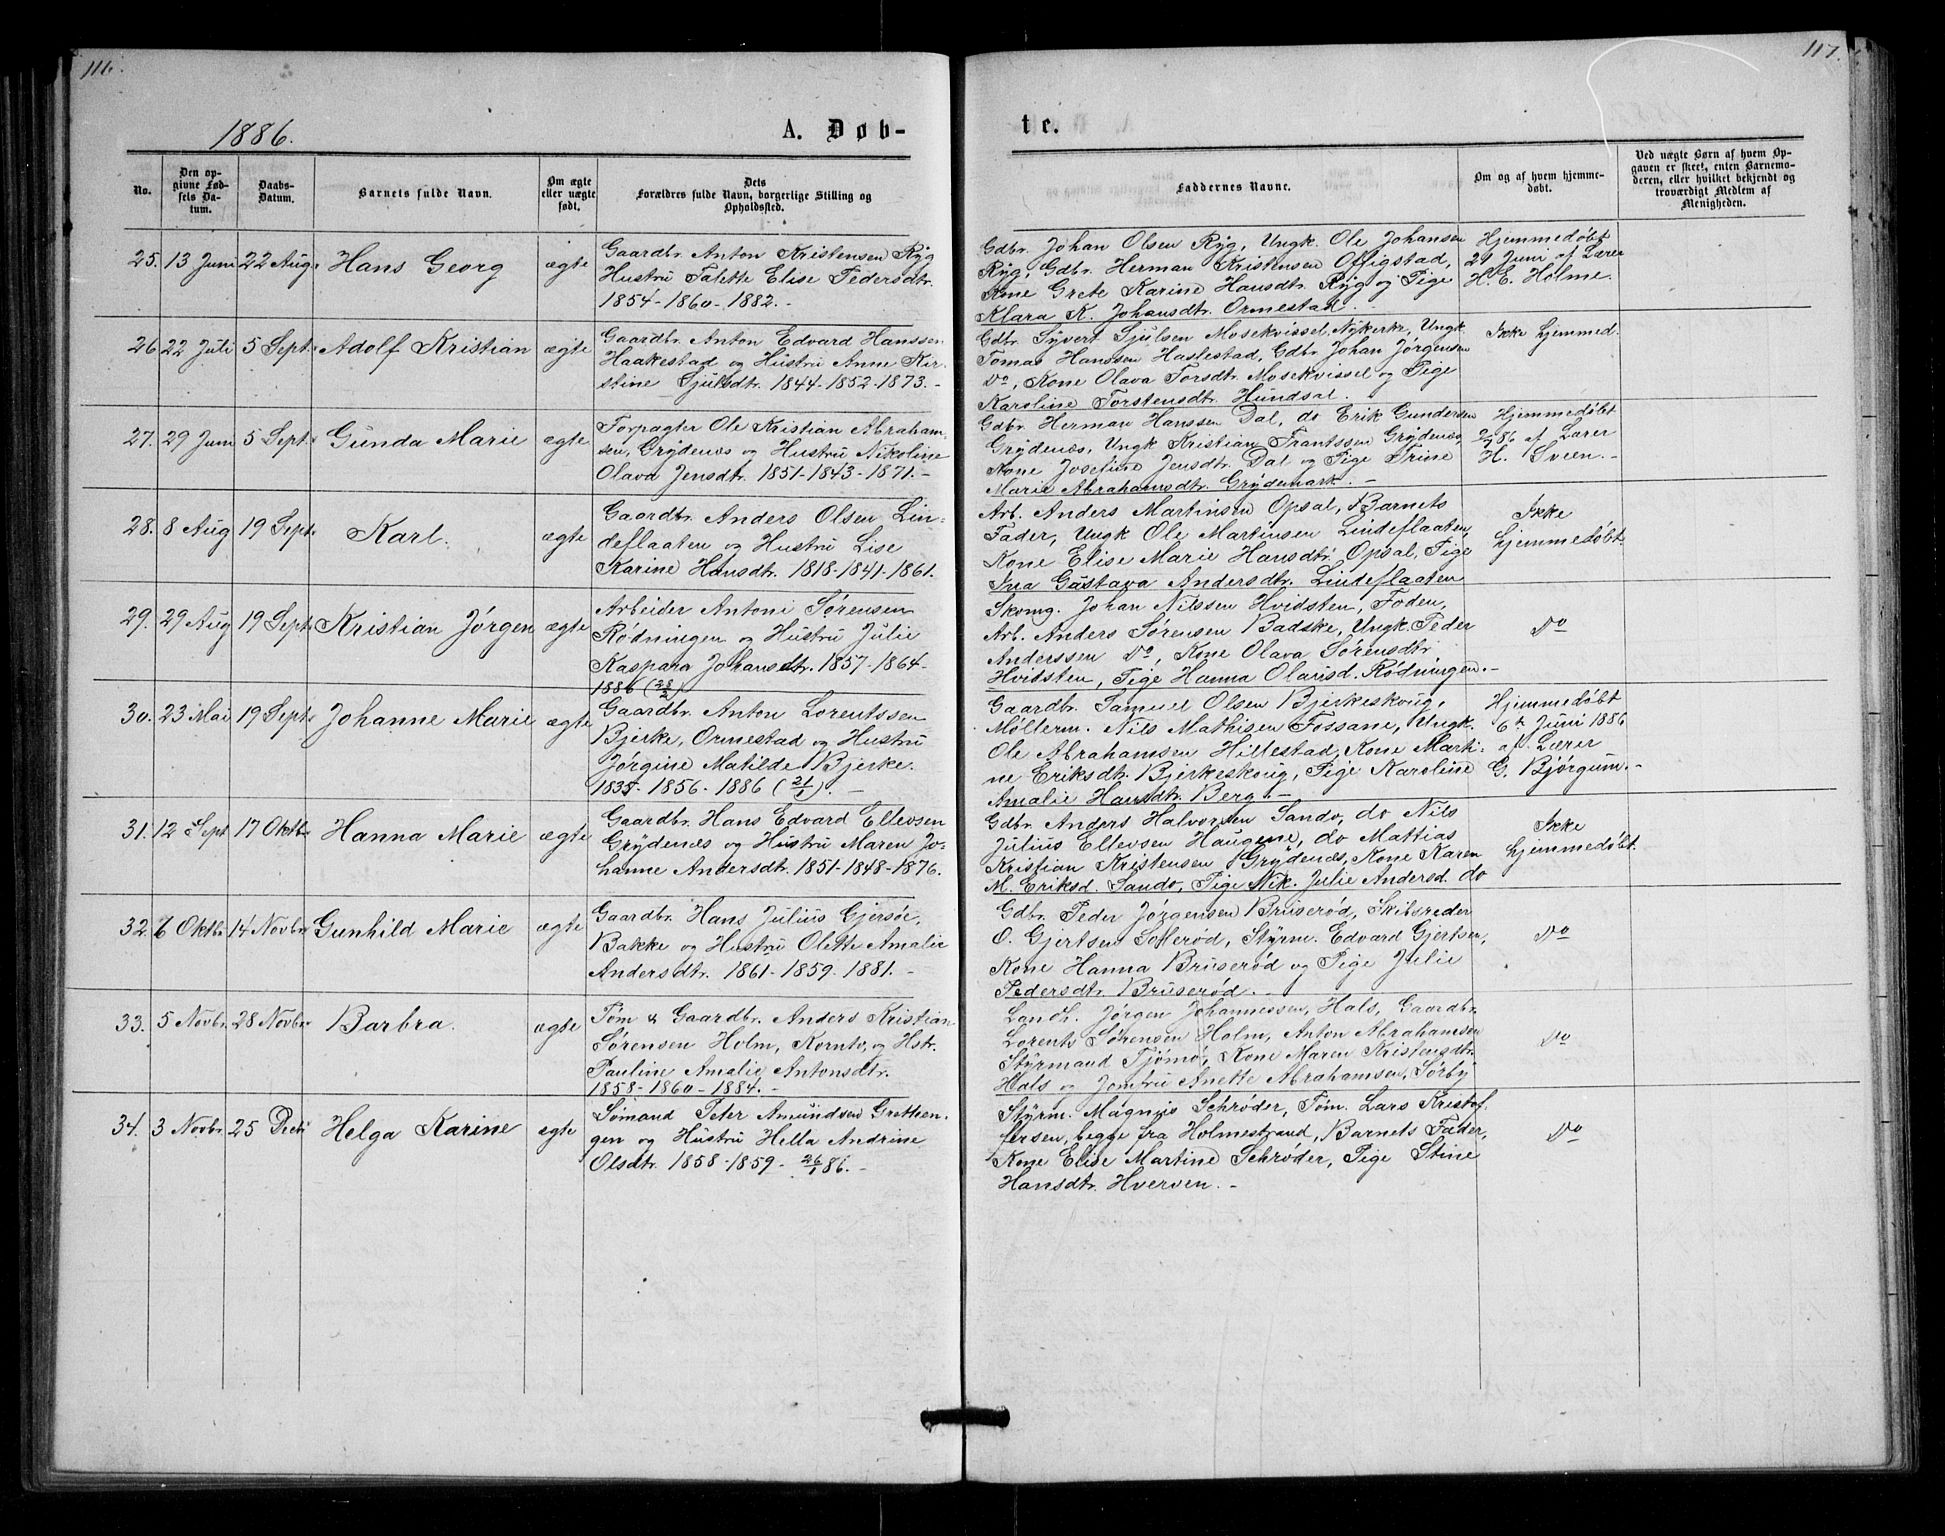 116.
1886.
A. Døb-
No.
Den opgivne Fødsels Datum.
Daabs-Datum.
Barnets fulde Navn.
Om ægte eller uægte født.
Dets Forældres fulde Navn, borgerlige Stilling og Opholdssted.
25. 13 Juni 22 Aug. Hans Georg ægte
Gaardbr. Anton Kristensen Ryg
Hustru Talette Elise Pedersdtr.
1854-1860-1882.-
26 22 Juli 5 Sept. Adolf Kristian ægte
Gaardbr. Anton Edvard Hanssen
Haakestad og Hustru Anne Kir-
stine Sjulsdtr. 1844-1852-1873.-
27. 29 Juni 5 Sept. Gunda Marie ægte
Forpagter Ole Kristian Abraham-
sen, Grydenæs og Hustru Nikoline
Olava Jensdtr. 1851-1843-1871.-
28. 8 Aug 19 Sept. Karl. ægte
Gaardbr. Anders Olsen Lin-
deflaaten og Hustru Lise
Karine Hansdtr. 1818-1841-1861.
29. 29 Aug 19 Sept. Kristian Jörgen ægte
Arbeider Antoni Sørensen
Rødningen og Hustru Julie
Kaspara Johansdtr. 1857-1864-
1886 (28/2)
30. 23 Mai 19 Sept. Johanne Marie ægte
Gaardbr. Anton Lorentssen
Bjerke, Ormestad og Hustru
Jörgine Matilde Bjerke.
1835-1856-1886 (21/1).-
31. 12 Sept 17 Oktbr Hanna Marie ægte
Gaardbr. Hans Edvard Ellevsen
Grydenæs og Hustru Maren Jo-
hanne Andersdtr. 1851-1848-1876.
32 6 Oktbr 14 Novbr Gunhild Marie ægte
Gaardbr. Hans Julius Gjersøe,
Bakke og Hustru Olette Amalie
Andersdtr. 1861-1859-1881.-
33. 5 Novbr. 28 Novbr Barbra. ægte
Tøm & Gaardbr. Anders Kristian
Sørensen Holm, Kornto, og Hstr.
Pauline Amalie Antonsdtr.
1858-1860-1884.-
34. 3 Novbr. 25 Decbr Helga Karine ægte
Sømand Peter Amundsen Gretteen-
gen og Hustru Hella Andrine
Olsdtr. 1858-1859- 26/1 86.-
117.
te.
Faddernes Navne.
Om og af hvem hjemmedøbt.
Ved uægte Børn af hvem Opgaven er skeet, enten Barnemoderen, eller hvilket bekjendt og troværdigt Medlem af Menigheden.
Gdbr. Johan Olsen Ryg, Ungk. Ole Johansen
Ryg, Gdbr. Herman Kristensen Offigstad,
Kone Grete Karine Hansdtr. Ryg og Pige
Klara K. Johansdtr. Ormestad.
Hjemmedøbt
21 Juni af Lærer
H. E. Holme.
Gdbr. Syvert Sjulsen Mosekvissel, Nykerke, Ungk.
Tomas Hanssen Hastestad, Gdbr. Johan Jørgensen
Do, Kone Olava Torsdtr. Mosekvissel og Pige
Karoline Torstensdtr. Hundsal.
Ikke hjemmed.
Gdbr. Herman Hanssen Dal, do Erik Gundersen
Grydenæs, Ungk Kristian Frantssen Grydenæs,
Kone Josefine Jensdtr. Dal og Pige Trine
Marie Abrahamsdtr. Grydemark.-
Hjemmedøbt
2/7 86 af Lærer
H. Sveen.-
Arb. Anders Martinsen Opsal, Barnets
Fader, Ungk Ole Martinsen Lindeflaaten,
Kone Elise Marie Hansdtr. Opsal, Pige
Ina Gustava Andersdtr. Lindeflaaten
Ikke
hjemmedøbt.
Skomg. Johan Nilssen Hvidsten, Foden,
Arb. Anders Sørensen Badske, Ungk. Peder
Anderssen Do, Kone Olava Sørensdtr
Hvidsten, Pige Hanna Olarisd. Rødningen.-
Do
Gaardbr. Samuel Olsen Bjerkeskoug,
Møllerm. Nils Mathisen Fossane, Ungk.
Ole Abrahamsen Hillestad, Kone Marti-
ne Eriksdtr. Bjerkeskoug, Pige Karoline
Amalie Hansdtr. Berg.-
Hjemmedøbt
6te Juni 1886
af Lærer
G. Bjørgum.-
Gdbr. Anders Halvorsen Sando, do Nils
Julius Ellevsen Haugene, do Mattias
Kristian Kristensen Grydenæs, Kone Karen
M. Eriksd. Sando, Pige Nik. Julie Andersd. do
Ikke
hjemmedøbt.
Gdbr. Peder Jörgensen Bruserød, Skibsreder
O. Gjertsen Sollerød, Styrm. Edvard Gjertsen,
Kone Hanna Bruserød og Pige Julie
Pedersdtr Bruserød.-
Do
Landh. Jörgen Johannessen, Hals, Gaardbr.
Lorents Sørensen Holm, Anton Abrahamsen
Styrmand Tjømø, Kone Maren Kristensdtr.
Hals og Jomfru Anette Abrahamsen, Sørby
Do
Styrm. Magnus Schrøder, Tøm. Lars Kristof-
fersen, begge fra Holmestrand, Barnets Fader,
Kone Elise Martine Schrøder, Pige Stine
Hansdtr. Hverven.-
Do